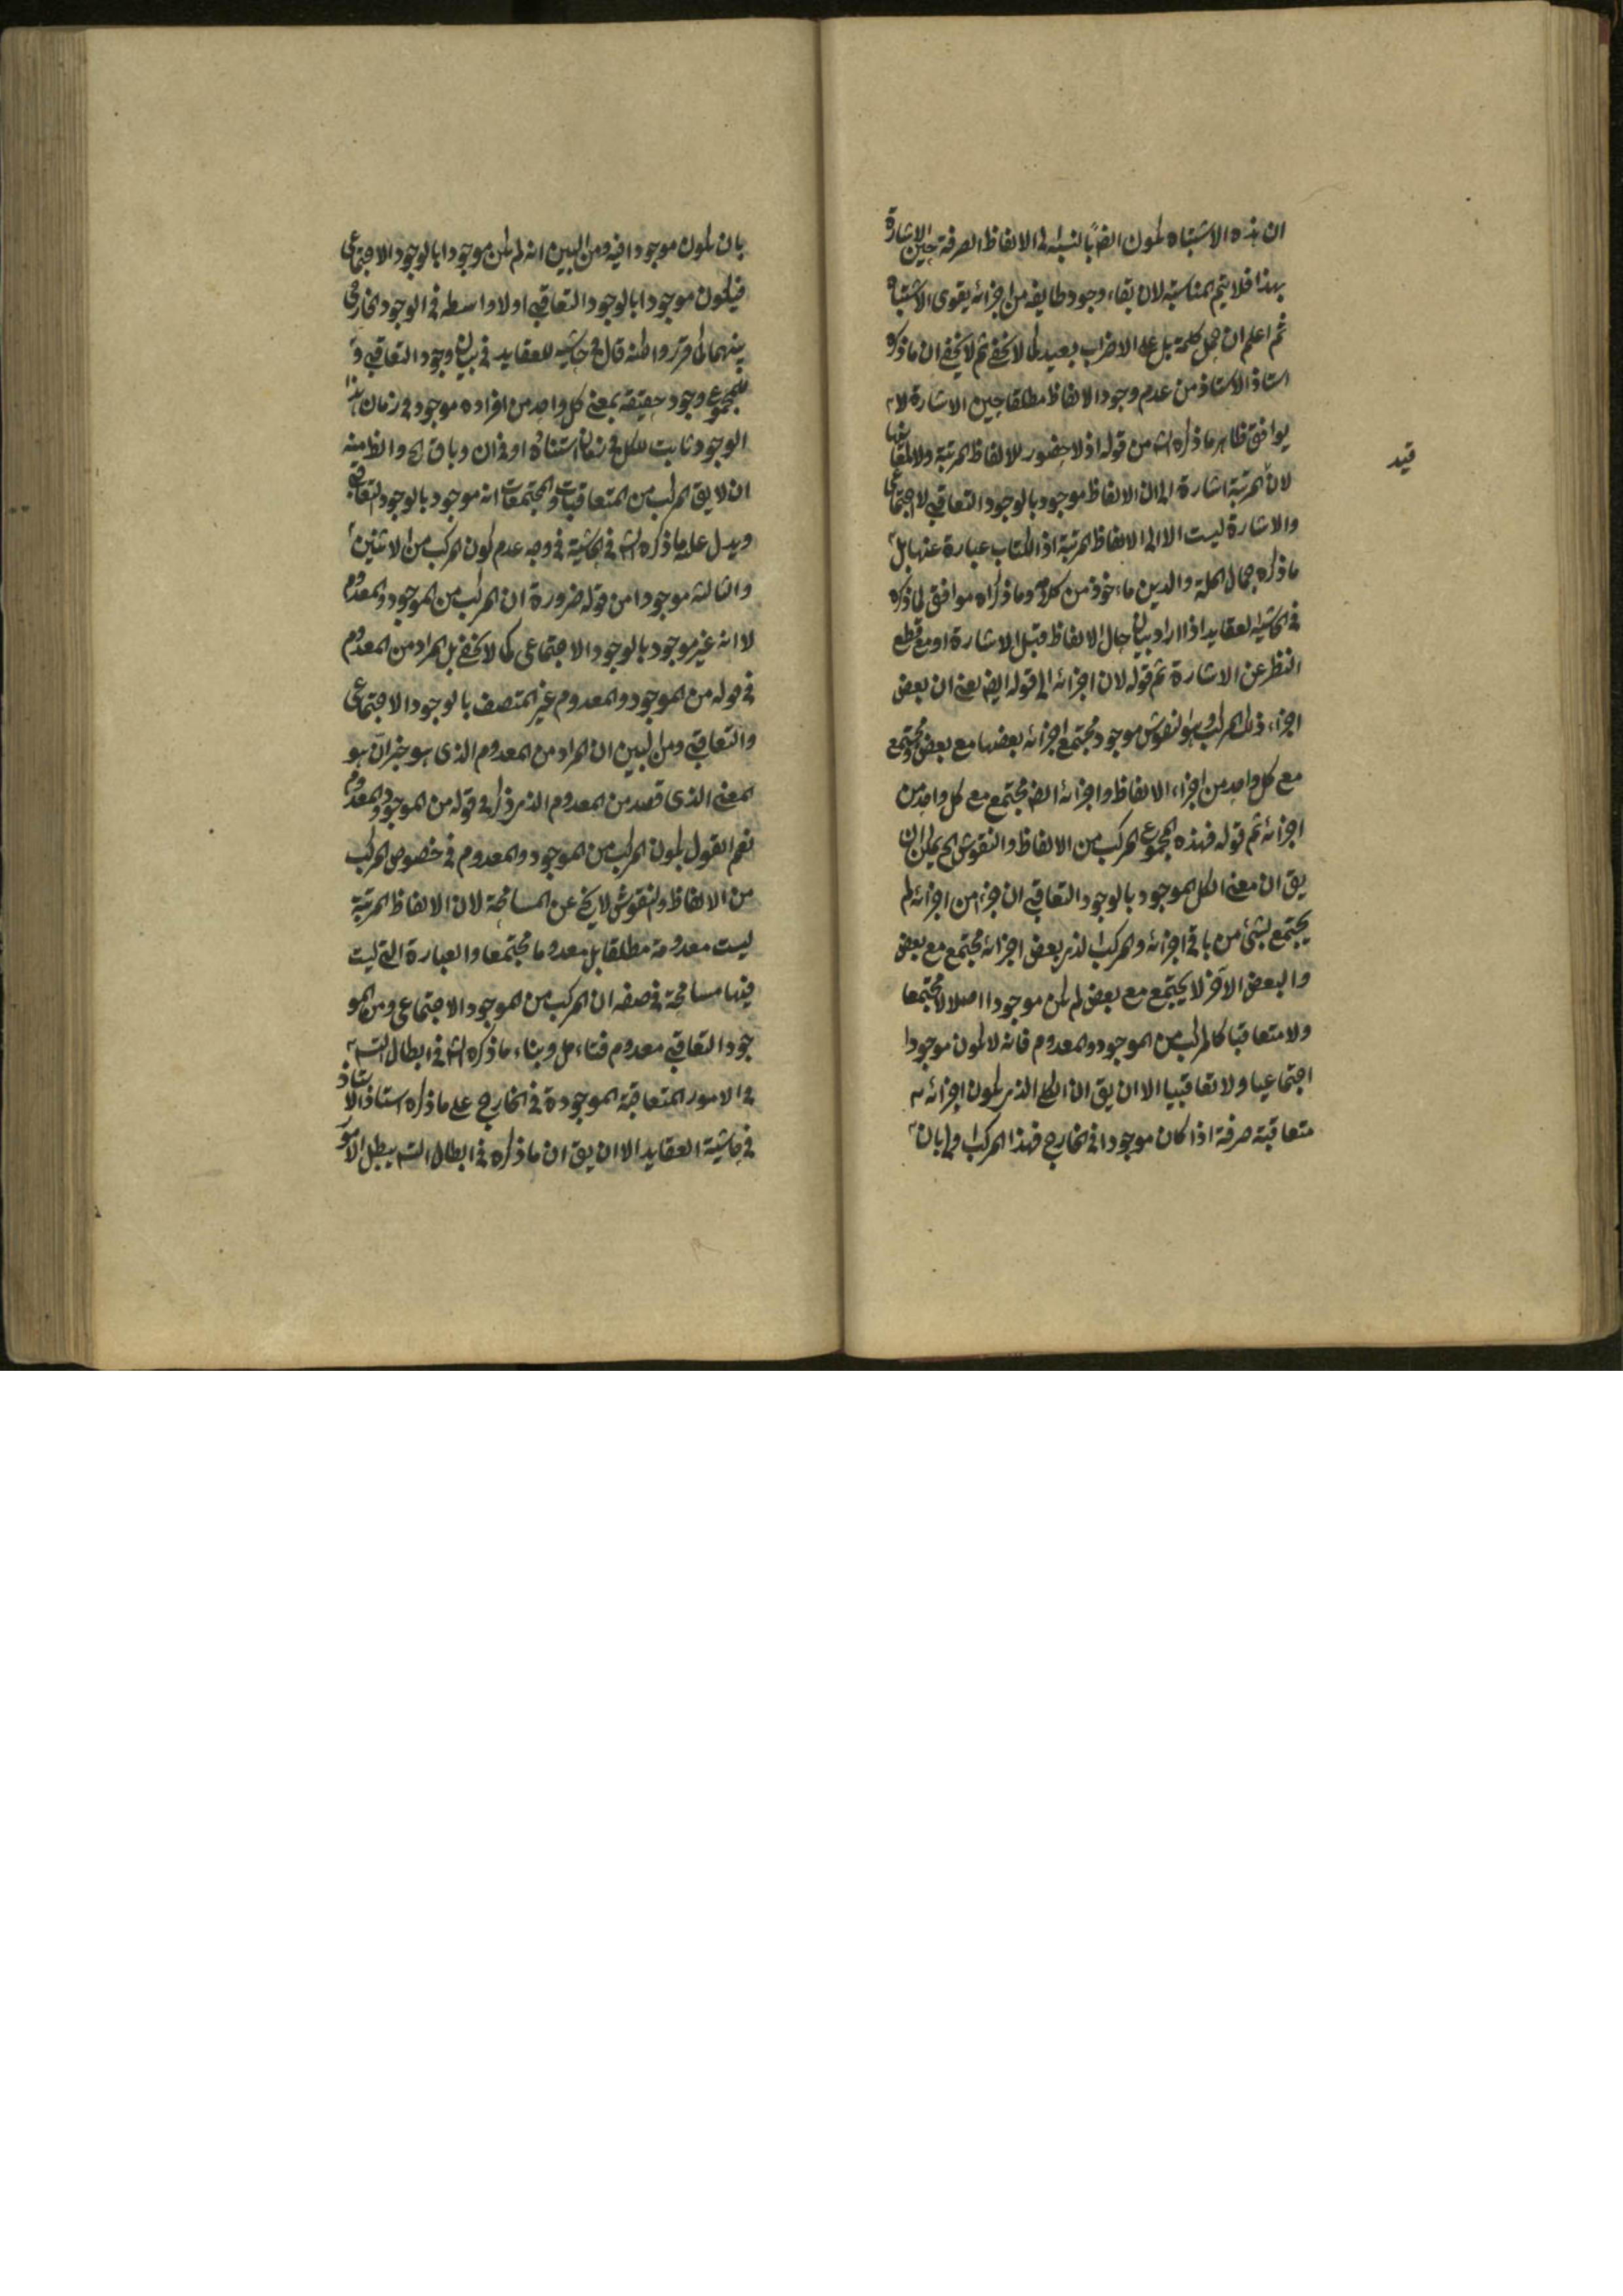 ان هذه الاشتباه يكون ايضا بالنسبة الى الالفاظ الصرفة حين الاشارة
بهذا فلا يتم المناسبة لان بقاء وجود طايفه من اجزائه يقوى الاشتباه
ثم اعلم ان حمل كلمة بل على الاضراب بعيد كما لا يخفى ثم لا يخفى ان ما ذكره
استاذ الاستاذ من عدم وجود الالفاظ مطلقا حين الاشارة لا
يوافق ظاهر ما ذكره الش من قوله اذ لا حضور للالفاظ المرتبة ولا لمعانيها
قيد
لان المرتبة اشارة الى ان الالفاظ موجود بالوجود التعاقبى لا اجتماعى
والاشارة ليست الا الى الالفاظ المرتبة اذ الكتاب عبارة عنها بل
ما ذكره جمال الملة والدين ماءخوذ من كلام وما ذكراه موافق لما ذكره
فى الحاشية لعقايد اذا اراد بيان حال الالفاظ قبل الاشارة او مع قطع
النظر عن الاشارة ثم قوله لان اجزائه الى قوله ايض يعنى ان بعض
اجزاء ذلك المركب وهو النقوش موجود مجتمع اجزائه بعضها مع بعض ومجتمع
مع كل واحد من اجزاء الالفاظ واجزائه ايض مجتمع مع كل واحد من
اجزائه ثم قوله فهذه المجموع المركب من الالفاظ والنقوش الخ يمكن ان
يق ان معنى الكل الموجود بالوجود التعاقبى ان جزء من اجزائه لم
يجتمع بشئ من باقى اجزائه والمركب الذى بعض اجزائه مجتمع مع بعض
والبعض الآخر لا يجتمع مع بعض لم يكن موجودا اصلا لا مجتمعا
ولا متعاقبا كالمركب من الموجود والمعدوم فانه لا يكون موجودا
اجتماعيا ولا تعاقبيا الا ان يق ان الكل الذى يكون اجزائه
متعاقبة صرفة اذا كان موجودا فى الخارج فهذا المركب اولى بان
بان يكون موجودا فيه ومن البين انه لم يكن موجودا بالوجود الاجتماعى
فيكون موجودا بالوجود التعاقبى اولا واسطه فى الوجود الخارجى
بينهما كما قرر واطنه قال فى حاشيه للعقايد فى بيان وجود التعاقبى و
للمجموع وجود حقيقة بمعنى كل واحد من افراده موجود فى زمان هذا
الوجود ثابت للكل فى زمان استثناه او فى ان وباق الخ والظ منه
ان لا يق المركب من المتعاقبات والمجتمعات انه موجود بالوجود التعاقبى
ويدل عليه ما ذكره الش فى الحاشية فى وجه عدم كون المركب من الاثنين
والثالث موجودا من قوله ضرورة ان المركب من الموجود والمعدوم
لا انه غير موجود بالوجود الاجتماعى كما لا يخفى بل المراد من المعدوم
فى قوله من الموجود والمعدوم غير المتصف بالوجود الاجتماعى
والتعاقبى ومن البين ان المراد من المعدوم الذى هو خبر ان هو
المعنى الذى قصد من المعدوم الذى ذكر فى قوله من الموجود والمعدوم
نعم القول بكون المركب من الموجود والمعدوم فى خصوص المركب
من الالفاظ والنقوش لا يخ عن المسامحة لان الالفاظ المرتبة
ليست معدومة مطلقا بل معدوما مجتمعا والعبارة التى ليت
فيها مسامحة فى صفه ان المركب من الموجود الاجتماعى ومن المو
جود التعاقبى معدوم فتاءمل وبناء ما ذكره الش فى ابطال التس
فى الامور المتعاقبة الموجودة فى الخارج على ما ذكره استاذ الاستاذ
فى حاشية العقايد الا ان يق ان ما ذكره فى ابطال التس يبطل الامور